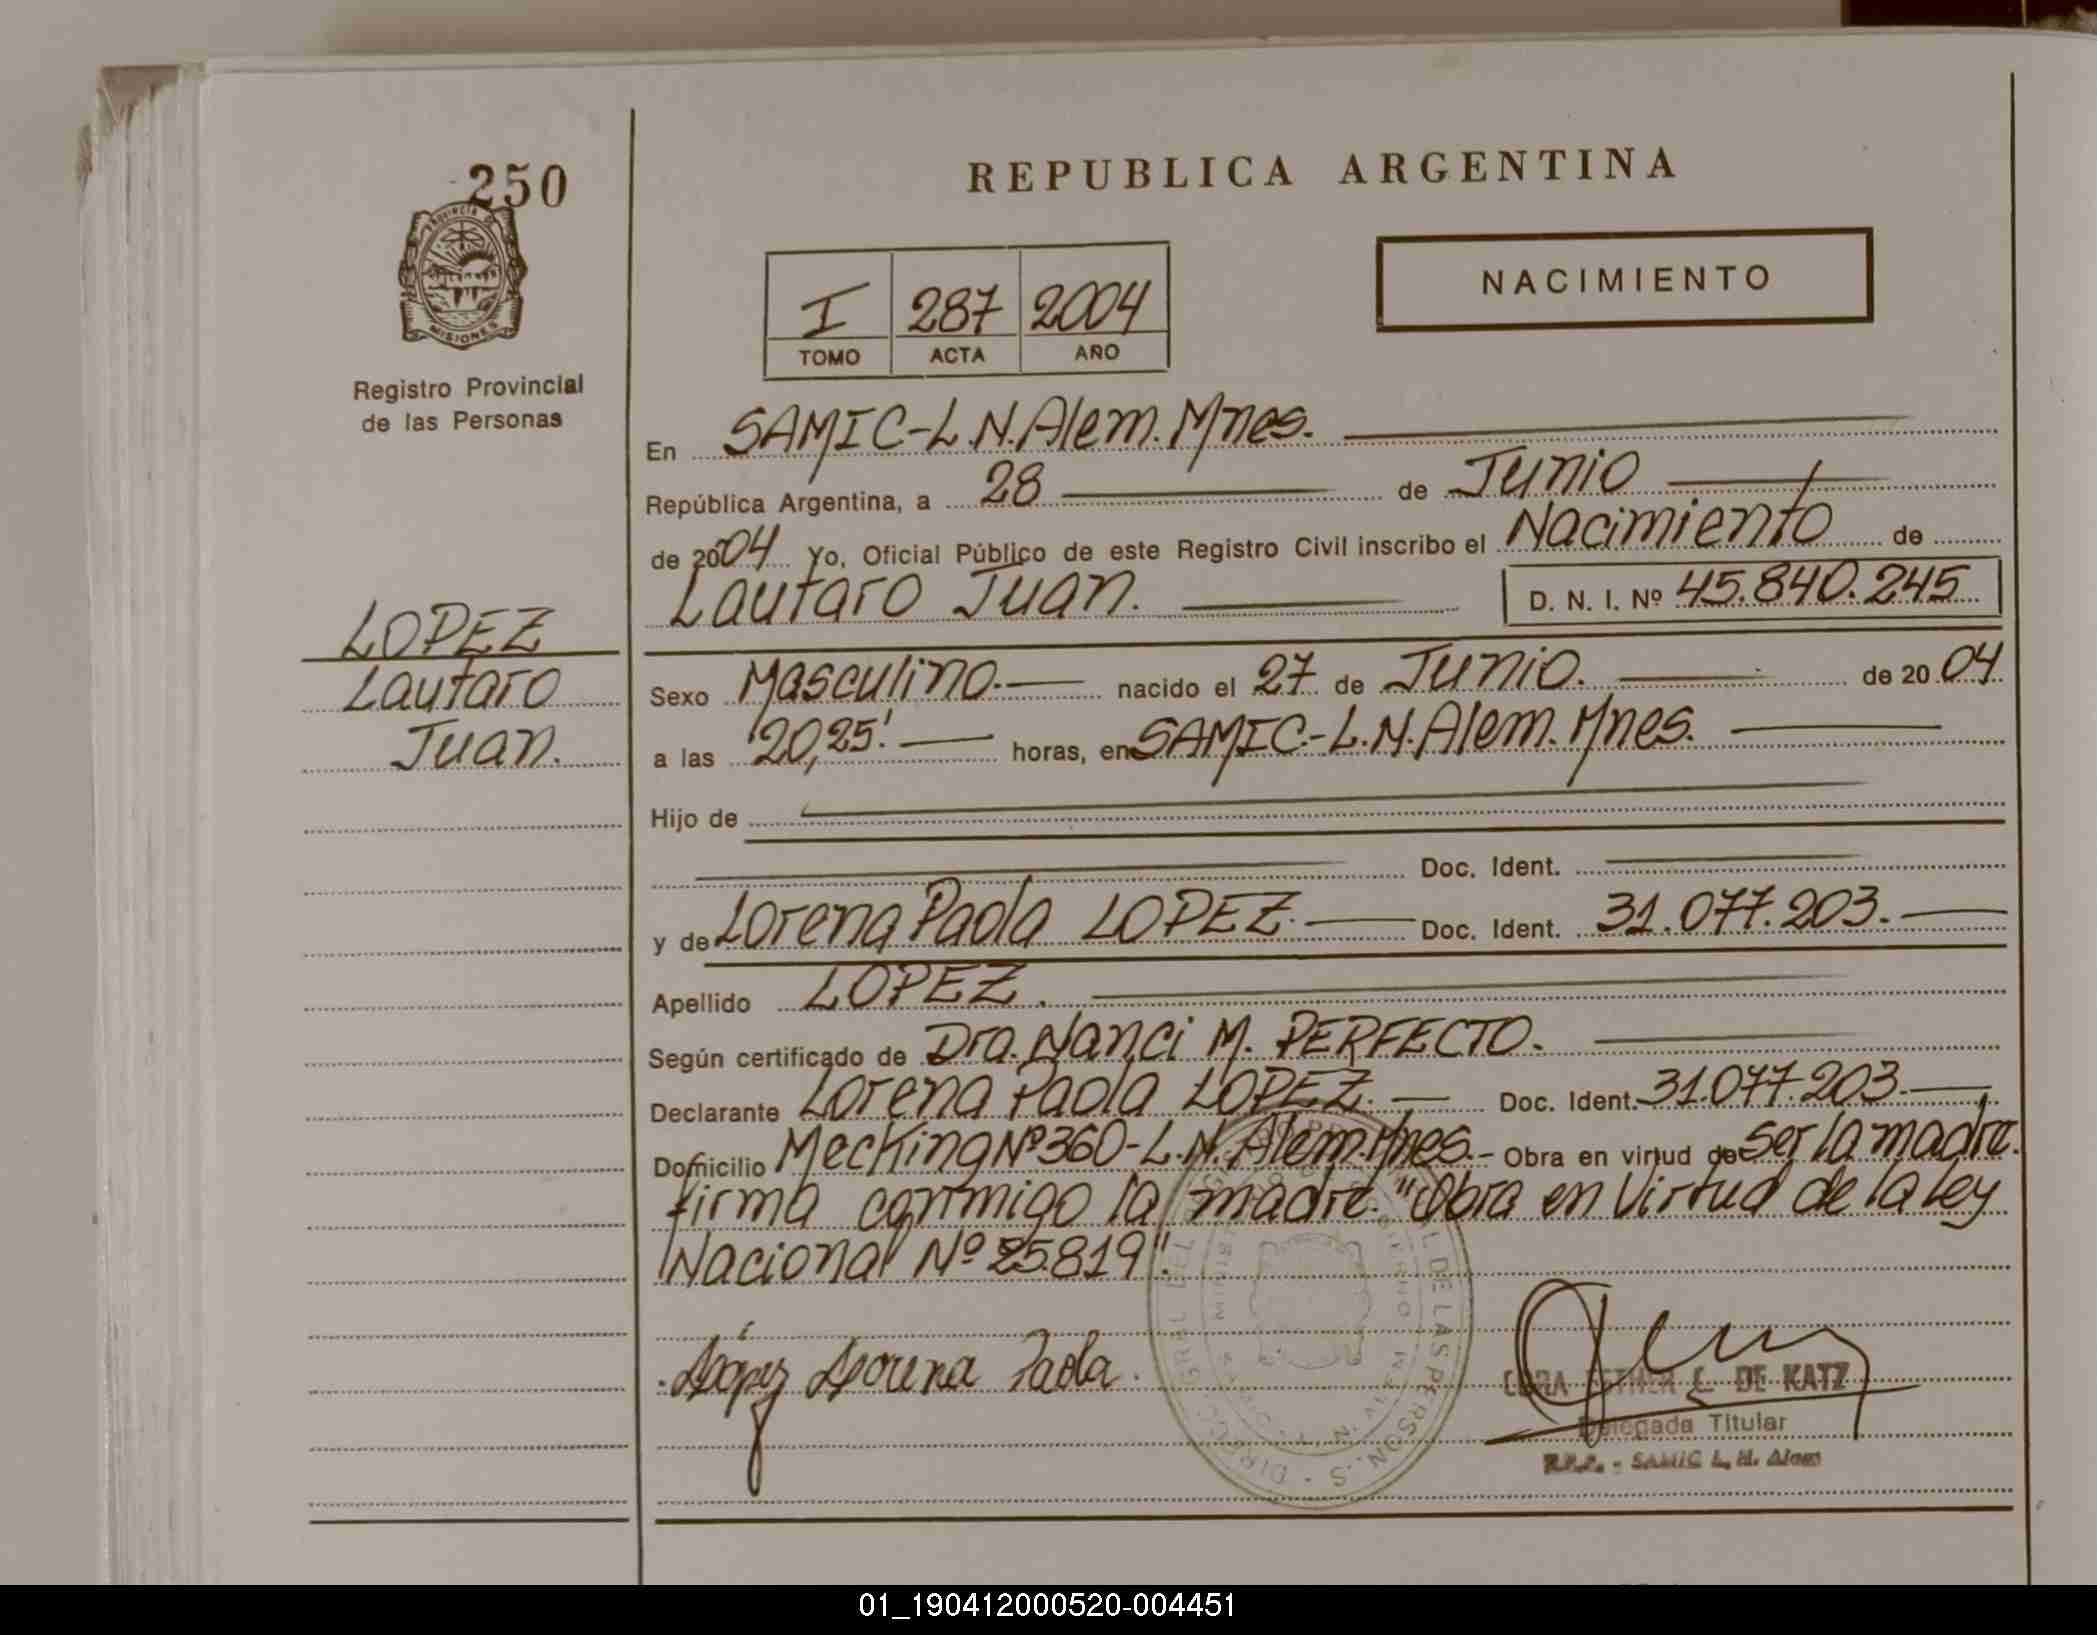 250
PROVINCIA DE
MISIONES
Registro Provincial
de las Personas
LOPEZ
Lautaro
Juan.
REPUBLICA ARGENTINA
NACIMIENTO
I 287 2004
TOMO ACTA AÑO
En SAMIC-L.N.Alem.Mnes.
República Argentina, a 28 de Junio
de 2004 Yo, Oficial Público de este Registro Civil inscribo el Nacimiento de
Lautaro Juan. D. N. I. Nº 45.840.245
Sexo Masculino. nacido el 27 de Junio. de 2004
a las 20,25' horas, en SAMIC.-L.N.Alem.Mnes.
Hijo de
Doc. Ident.
y de Lorena Paola LOPEZ. Doc. Ident. 31.077.203.
Apellido LOPEZ.
Según certificado de Dra. Nanci M. PERFECTO.
Declarante Lorena Paola LOPEZ. Doc. Ident. 31.077.203.
Domicilio Mecking Nº 360-L.N.Alem.Mnes.- Obra en virtud de ser la madre.
firma conmigo la madre. "Obra en Virtud de la Ley
Nacional Nº 25.819".
López Lorena Paola.
DE KATZ
Delegada Titular
SAMIC L. N. Alem
01_190412000520-004451